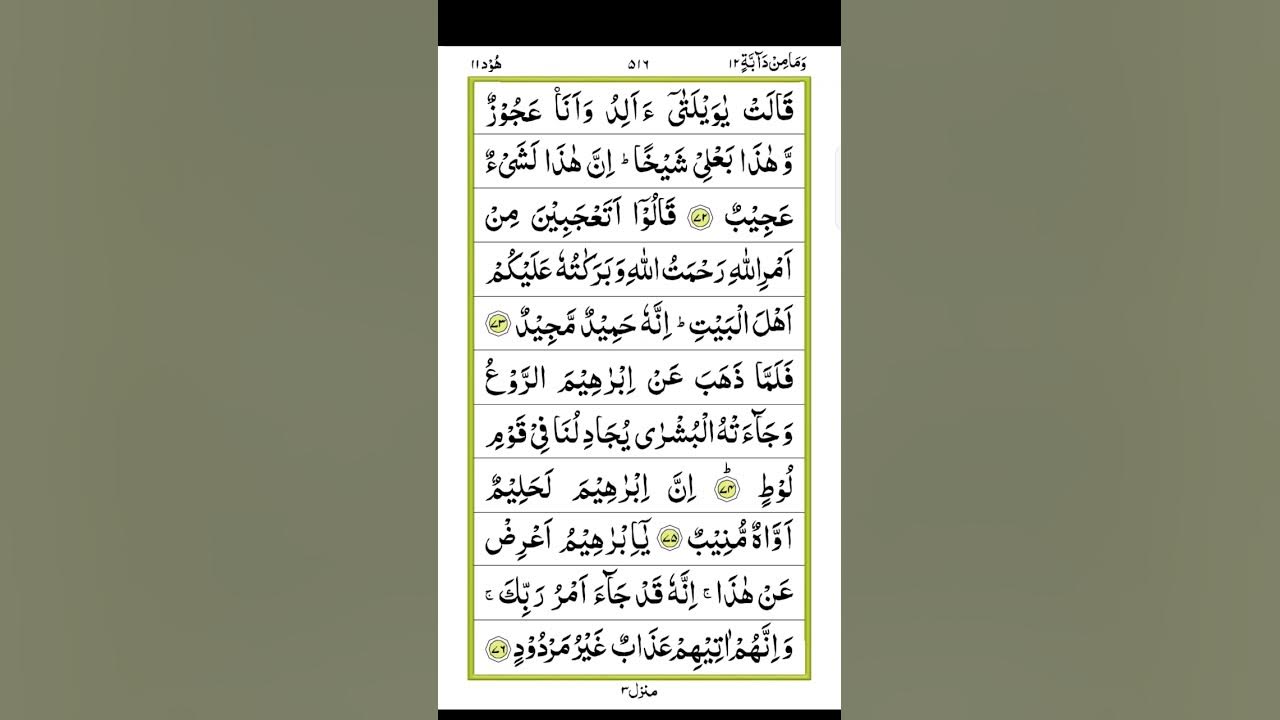 وَمَا مِنْ دَآبَّةٍ ١٢ ٥١٦ هُوْد ١١
قَالَتْ يٰوَيْلَتٰىٓ ءَاَلِدُ وَاَنَا۠ عَجُوْزٌ
وَّهٰذَا بَعْلِىْ شَيْخًا ؕ اِنَّ هٰذَا لَشَىْءٌ
عَجِيْبٌ ﴿۷۲﴾ قَالُوْۤا اَتَعْجَبِيْنَ مِنْ
اَمْرِ اللّٰهِ رَحْمَتُ اللّٰهِ وَبَرَكٰتُهٗ عَلَيْكُمْ
اَهْلَ الْبَيْتِ ؕ اِنَّهٗ حَمِيْدٌ مَّجِيْدٌ ﴿۷۳﴾
فَلَمَّا ذَهَبَ عَنْ اِبْرٰهِيْمَ الرَّوْعُ
وَجَآءَتْهُ الْبُشْرٰى يُجَادِلُنَا فِىْ قَوْمِ
لُوْطٍ ؕ ﴿۷۴﴾ اِنَّ اِبْرٰهِيْمَ لَحَلِيْمٌ
اَوَّاهٌ مُّنِيْبٌ ﴿۷۵﴾ يٰۤاِبْرٰهِيْمُ اَعْرِضْ
عَنْ هٰذَا ۚ اِنَّهٗ قَدْ جَآءَ اَمْرُ رَبِّكَ ۚ
وَاِنَّهُمْ اٰتِيْهِمْ عَذَابٌ غَيْرُ مَرْدُوْدٍ ﴿۷۶﴾
منزل ٣